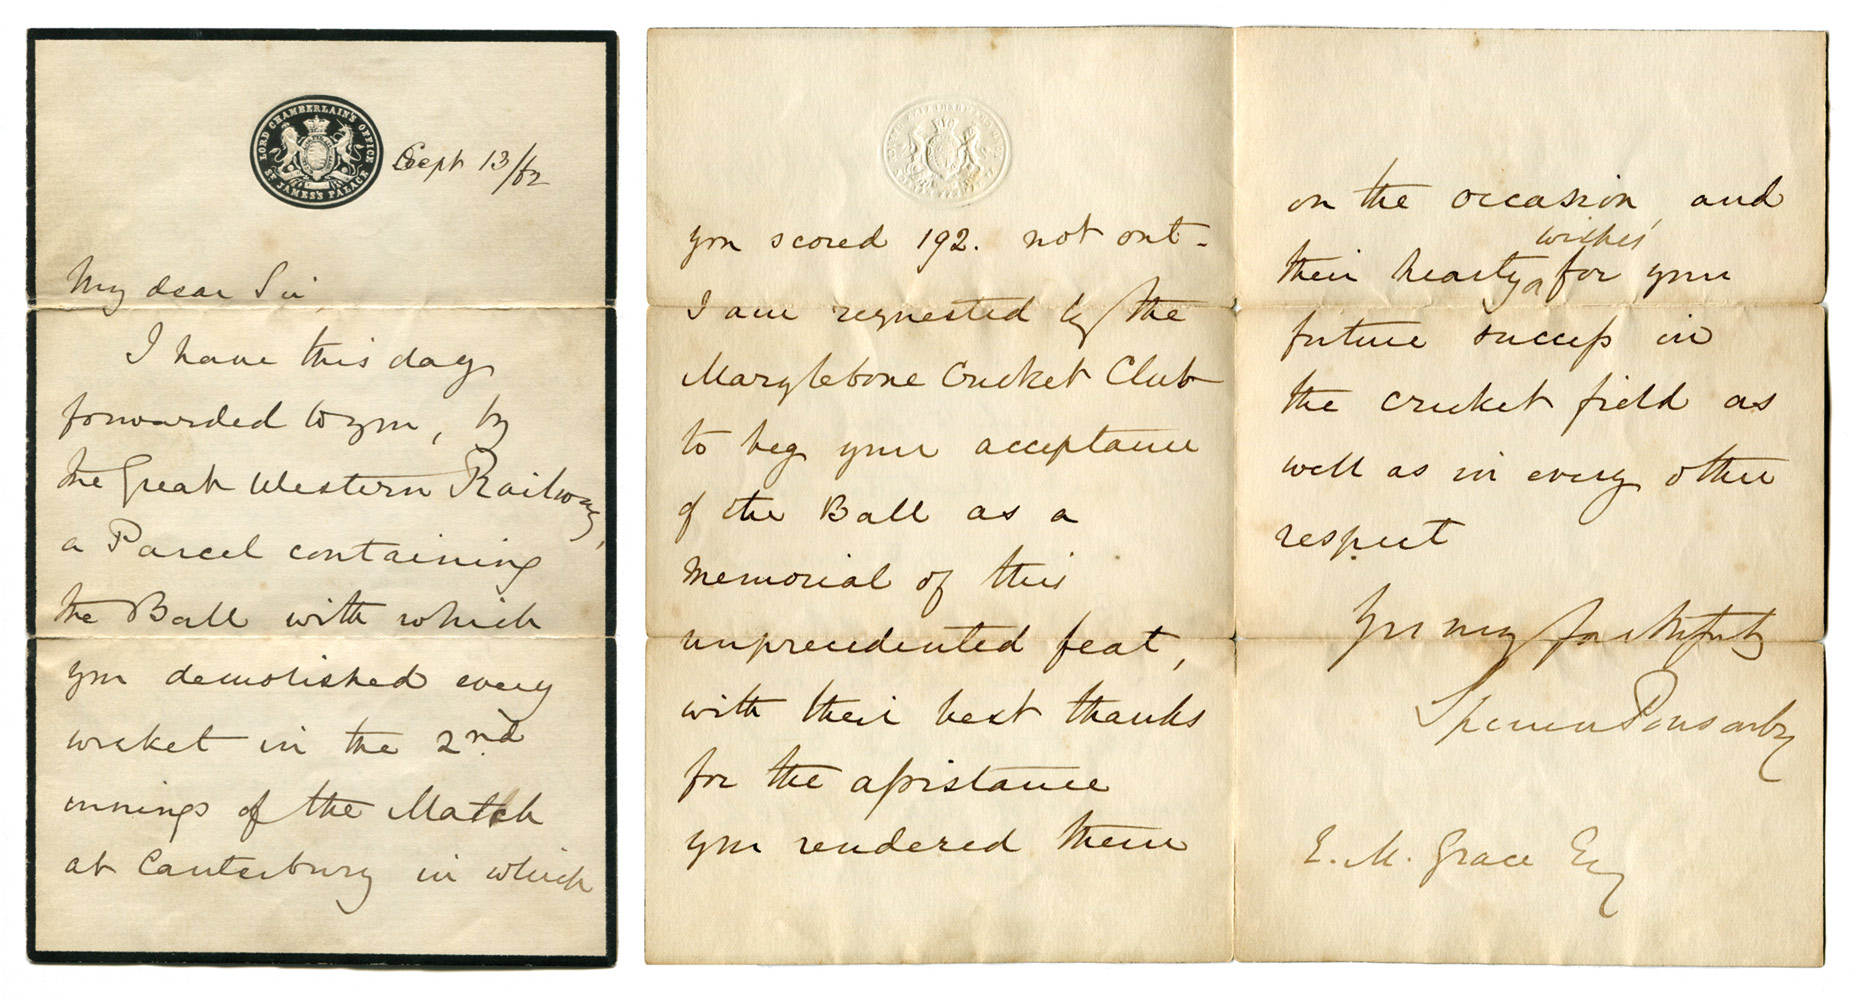 LORD CHAMBERLAIN'S OFFICE
ST JAMES'S PALACE
Sept 13/62
My dear Sir,
I have this day
forwarded to you, by
the Great Western Railway,
a Parcel containing
the Ball with which
you demolished every
wicket in the 2nd
innings of the Match
at Canterbury in which
you scored 192. not out -
I am requested by the
Marylebone Cricket Club
to beg your acceptance
of the Ball as a
memorial of this
unprecedented feat,
with their best thanks
for the assistance
you rendered them
on the occasion, and
wishes
their hearty ^ for your
future success in
the cricket field as
well as in every other
respect
Yrs very faithfully
Spencer Ponsonby
E. M. Grace Esq